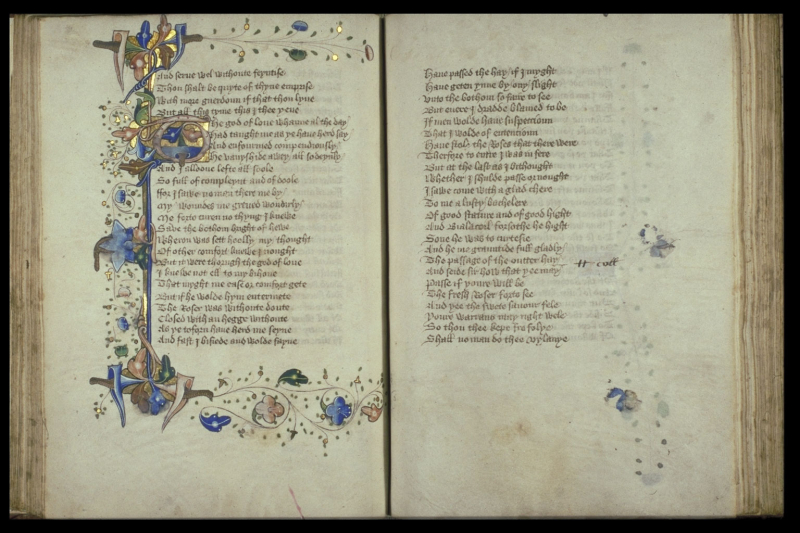 And serue wel withoute feyntise
Thou shalt be quyte of thyne emprise
With more guerdoun if that thou lyue
But all this tyme this I thee yeue
The god of loue whanne al the day
Had taught me as ye haue herd say
And enfourmed compendiously
He vanyshide awey all sodeynly
And I alloone lefte all soole
So full of compleynt and of doole
ffor I sawe no man there me by
My woundes me greued wondirly
Me forto curen no thyng I knewe
Saue the bothom bright of hewe
Wheron was sett hoolly my thought
Of other comfort knewe I nought
But it were thorugh the god of loue
I knewe not ell to my bihoue
That myght me ease or comfort gete
But if he wolde hym entermete
The Roser was withoute doute
Closed with an hegge withoute
As ye toforn haue herd me seyne
And fast I bisiede and wolde fayne
Haue passed the hay if I myght
Haue geten ynne by ony slight
Vnto the bothom so faire to see
But euere I dradde blamed to be
If men wolde haue suspeccioun
That I wolde of entencioun
Haue stole the Roses that there were
Therfore to entre I was in fere
But at the last as I bithought
Whether I shulde passe or nought
I sawe come with a glad chere
To me a lusty bachelere
Of good stature and of good hight
And Bialacoil forsothe he hight
Sone he was to curtesie
And he me grauntide full gladly
The passage of the outter hay
And seide sir how that yee may
Passe if youre wille be
The fresh Roser forto see
And yee the swete sauour fele
Youre warrans may right wele
So thou thee kepe fro folye
Shall no man do thee vylanye